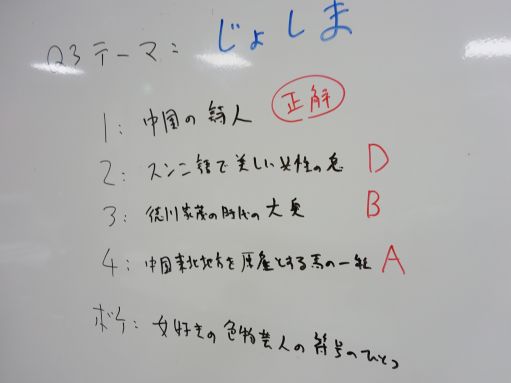 Q3 テーマ: じょしま
1: 中国の詩人 正解
2: スンニ語で美しい女性の意 D
3: 徳川家茂の時代の大奥 B
4: 中国東北地方を原産とする馬の一種 A
ボケ: 女好きの色物芸人の符号のひとつ